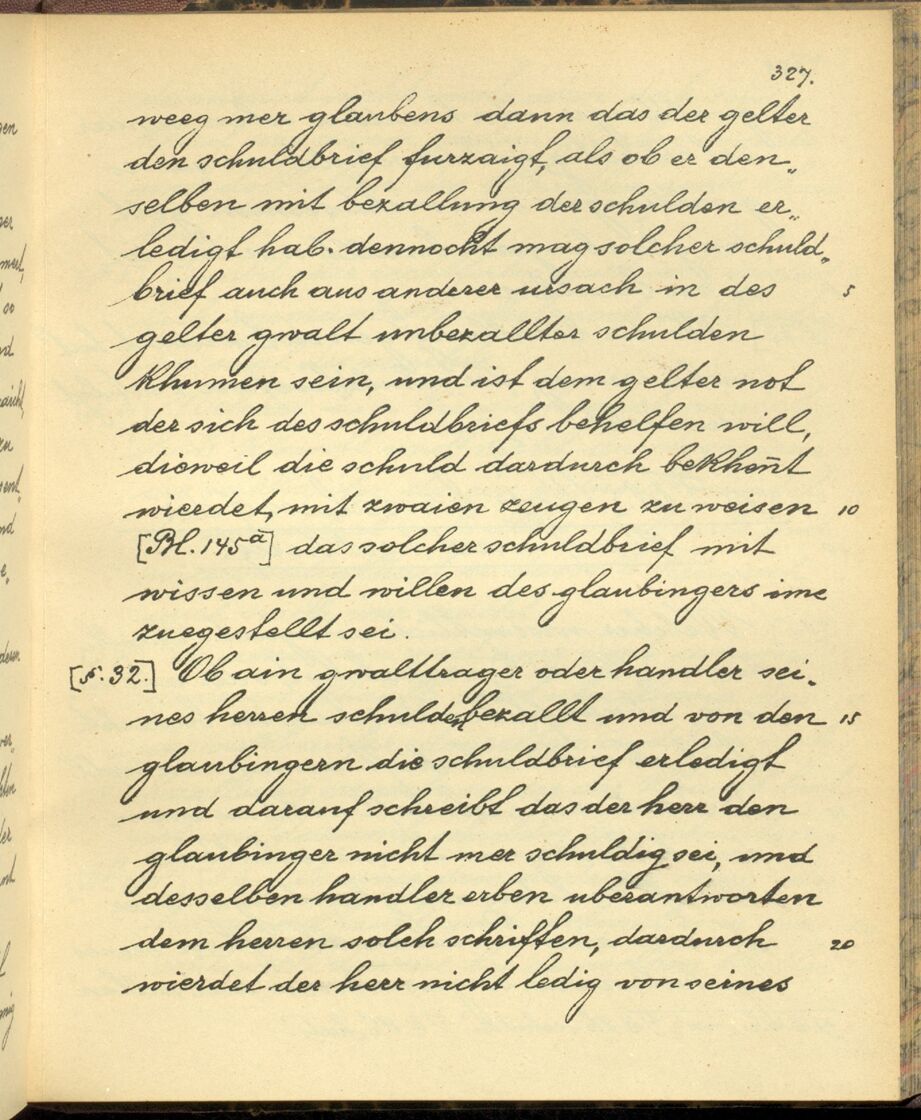 327.
weeg mer glaubens dann das der gelter
den schuldbrief furzaigt, als ob er den„
selben mit bezallung der schulden er„
ledigt hab. dennocht mag solcher schuld„
brief auch aus anderer ursach in des 5
gelter gwalt unbezallter schulden
khumen sein, und ist dem gelter not
der sich des schuldbriefs behelfen will,
dieweil die schuld dardurch bekhen̄t
wierdet, mit zwaien zeugen zu weisen 10
[Bl. 145a] das solcher schuldbrief mit
wissen und willen des glaubingers ime
zuegestellt sei.
[§. 32.] Ob ain gwalttrager oder handler sei„
nes herren schulden bezallt und von den 15
glaubingern die schuldbrief erledigt
und darauf schreibt das der herr den
glaubinger nicht mer schuldig sei, und
desselben handler erben uberantworten
dem herren solch schriften, dardurch 20
wierdet der herr nicht ledig von seines